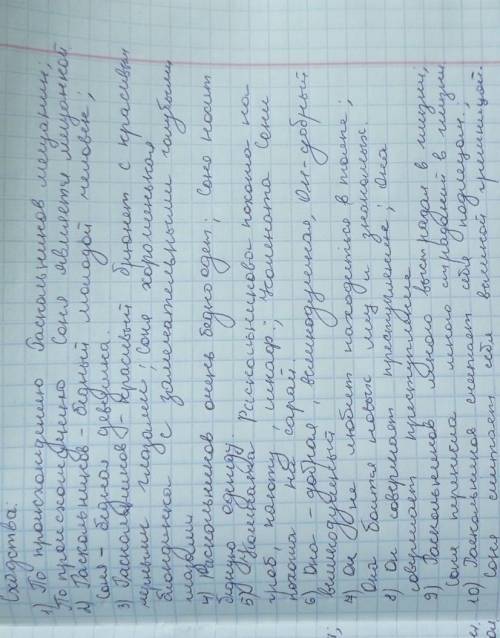 Сходства:
1) По происхождению Раскольников мещанин;
По происхождению Соня является мещанкой
2) Раскольников - бедный молодой человек;
Соня - бедная девушка.
3) Раскольников - красивый брюнет с красивыми
темными глазами; Соня хорошенькая
блондинка с замечательными голубыми
глазами
4) Раскольников очень бедно одет; Соня носит
бедную одежду
5) Комната Раскольникова похожа на
гроб, каюту, шкаф; Комната Сони
похожа на сарай
6) Она - добрая, великодушная, Он - добрый
великодушный
7) Он не любит находиться в толпе;
Она боится новых лиц и знакомых.
8) Он совершает преступление; Она
совершает преступление
9) Раскольников много выстрадал в жизни;
Соня перенесла много страданий в жизни
10) Раскольников считает себя подлецом;
Соня считает себя великой грешницей.